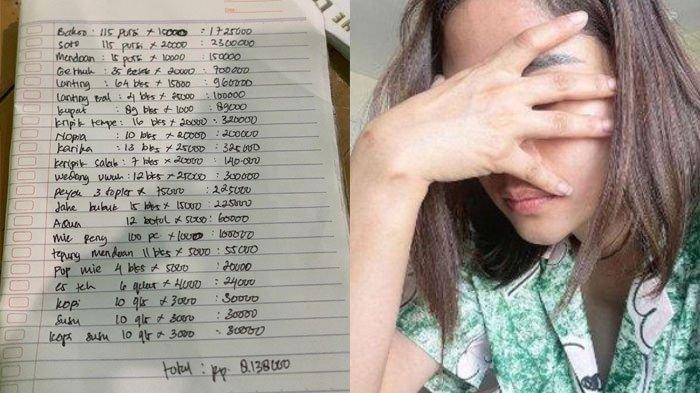 THE L
Bakso : 115 porsi x 15000 : 1725000
Soto 115 porsi x 20000 : 2300000
Mendoan : 15 porsi x 10000 : 150000
Gethuk : 35 besek x 20000 : 700000
Lanting : 64 bks x 15000 : 960000
Lanting Bal : 4 bks x 25000 : 100000
Kupat : 89 bks x 1000 : 89000
Kripik tempe : 16 bks x 20000 : 320000
Nopia : 10 bks x 20000 : 200000
Karika : 13 bks x 25000 : 325000
Keripik Salak : 7 bks x 20000 : 140.000
Wedang uwuh : 12 bks x 25000 : 300000
Peyek 3 toples x 75000 : 225000
Jahe bubuk 15 bks x 15000 : 225000
Aqua 12 botol x 5000 : 60000
Mie peng 100 pc x 1000 : 100000
tepung mendoan 11 bks x 5000 : 55000
Pop Mie 4 bks x 5000 : 20000
es teh 6 gelas x 4000 : 24000
Kopi 10 gls x 3000 : 30000
Susu 10 gls x 3000 : 30000
Kopi susu 10 gls x 3000 : 30000
total : Rp. 8.138000